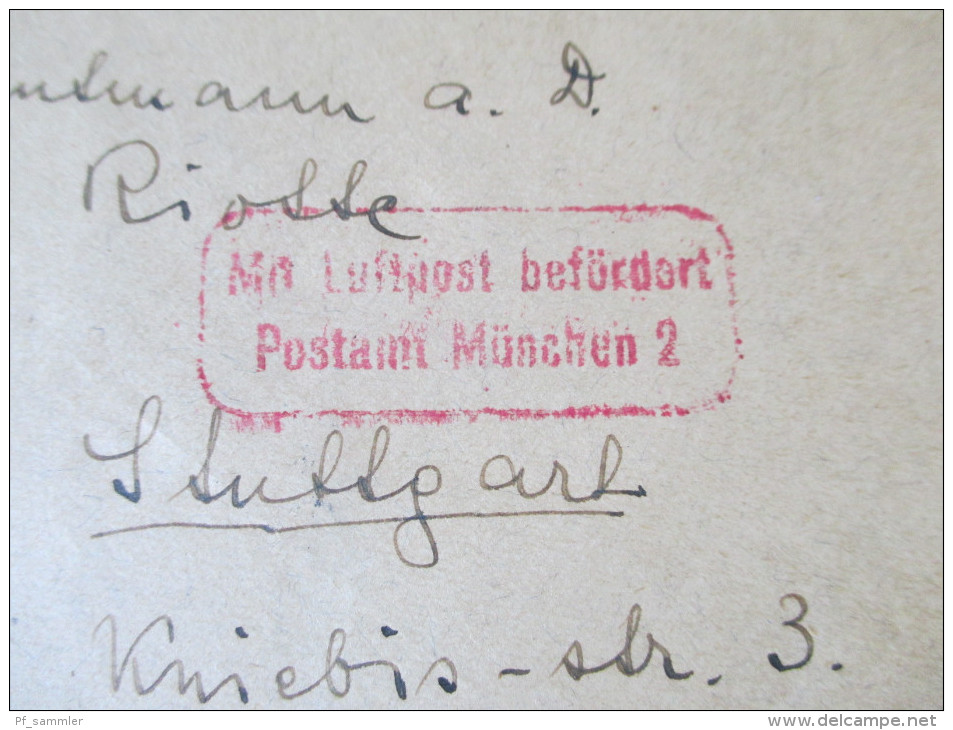 ntmann a. D.
Riotte
Mit Luftpost befördert
Postamt München 2
Stuttgart
Kniebis-str. 3.
Pf_sammler
http://www.delcampe.net